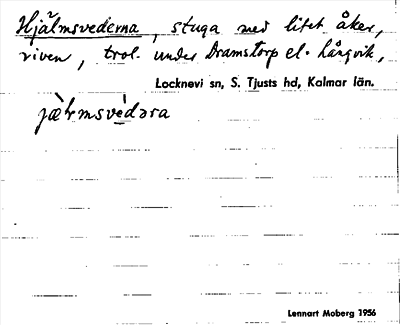 Hjälmsvederna, stuga med litet åker,
riven, trol. under Dramstorp el. Långvik,
Locknevi sn, S. Tjusts hd, Kalmar län.
jæ̀lmsvédəra
Lennart Moberg 1956